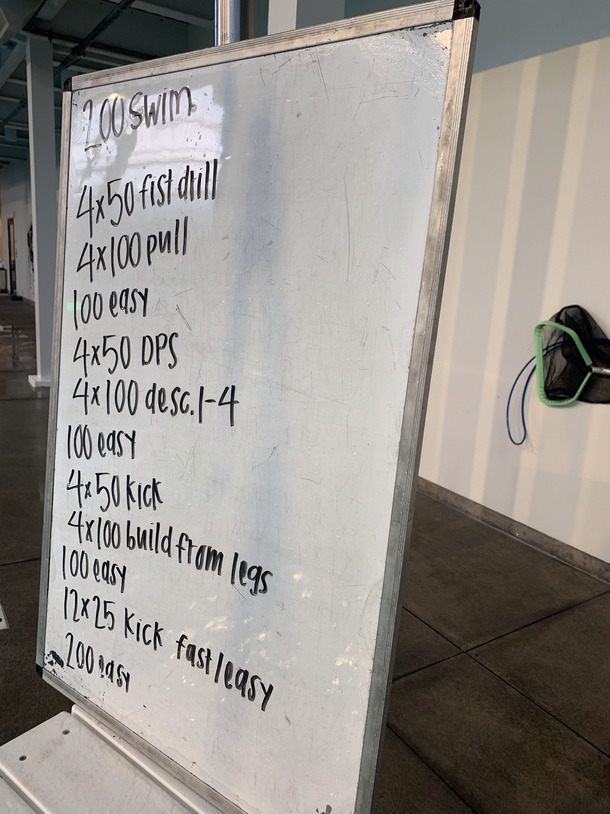 200 swim
4x50 fist drill
4x100 pull
100 easy
4x50 DPS
4x100 desc. 1-4
100 easy
4x50 kick
4x100 build from legs
100 easy
12x25 kick fast/easy
200 easy